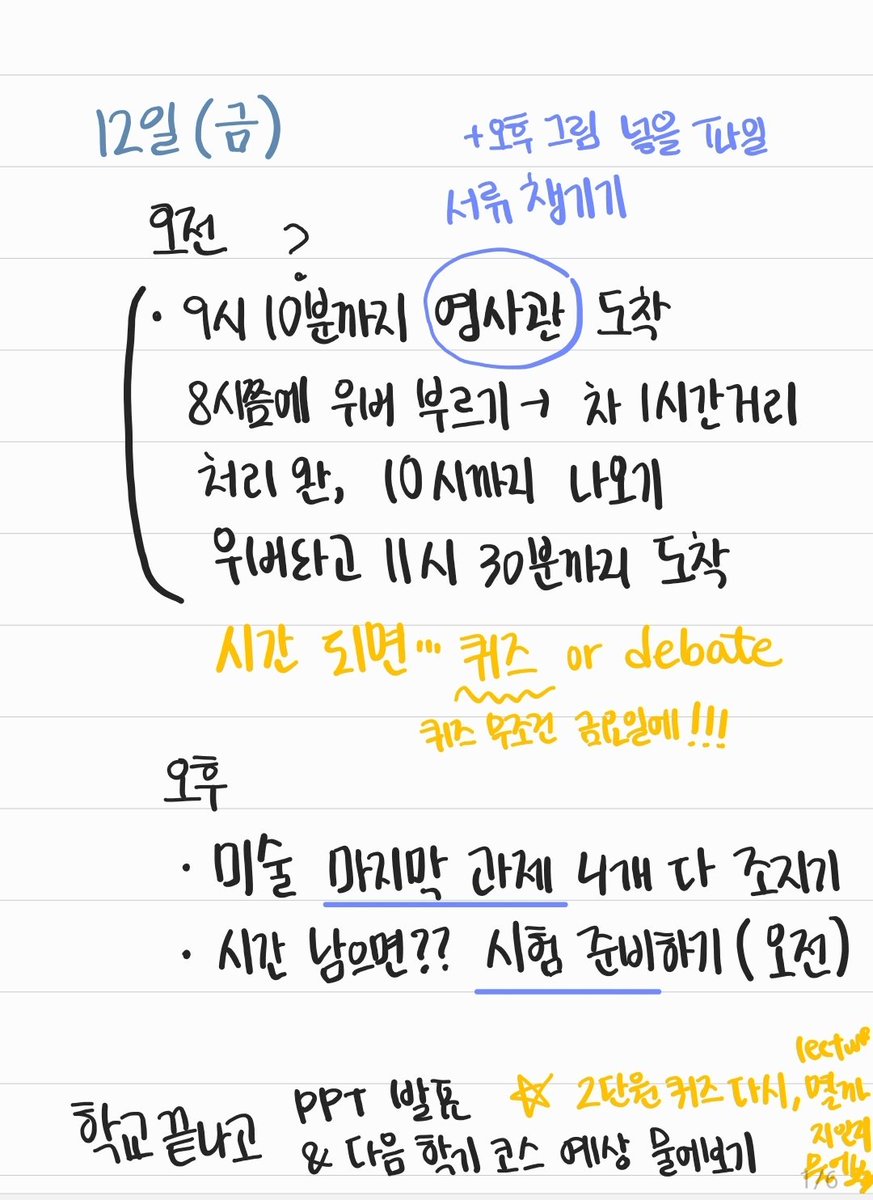 12일(금)
+오후 그림 넣을 파일
서류 챙기기
오전 ?
· 9시 10분까지 영사관 도착
8시쯤에 우버 부르기 → 차 1시간거리
처리 완, 10시까지 나오기
우버타고 11시 30분까지 도착
시간 되면… 퀴즈 or debate
퀴즈 무조건 금요일에!!!
오후
· 미술 마지막 과제 4개 다 조지기
· 시간 남으면?? 시험 준비하기 (오전)
학교 끝나고 PPT 발표
& 다음 학기 코스 예상 물어보기
☆ 2단원 퀴즈 다시, lecture 몇까지인지
1/6